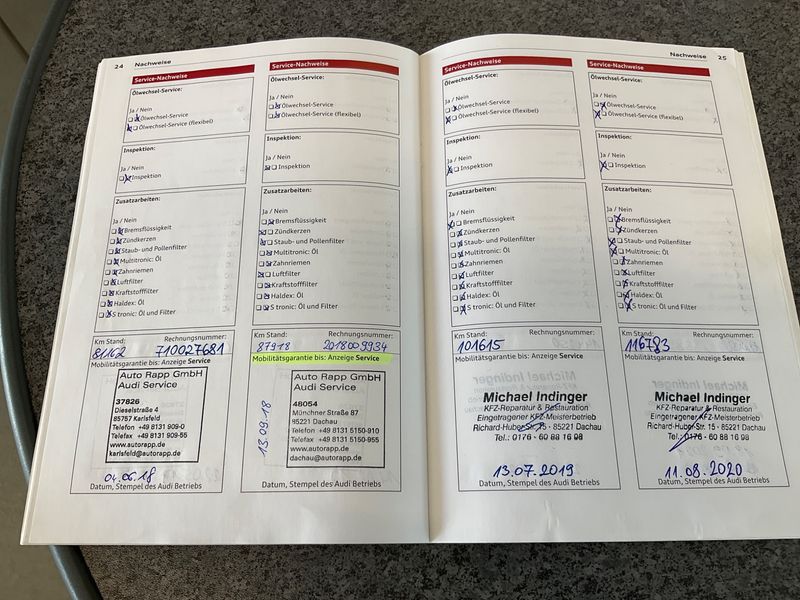 24 Nachweise
Service-Nachweise
Ölwechsel-Service:
Ja / Nein
Ölwechsel-Service
Ölwechsel-Service (flexibel)
Inspektion:
Ja / Nein
Inspektion
Zusatzarbeiten:
Ja / Nein
Bremsflüssigkeit
Zündkerzen
Staub- und Pollenfilter
Multitronic: Öl
Zahnriemen
Luftfilter
Kraftstofffilter
Haldex: Öl
S tronic: Öl und Filter
Km Stand: Rechnungsnummer:
81162 710027681
Mobilitätsgarantie bis: Anzeige Service
Auto Rapp GmbH
Audi Service
37826
Dieselstraße 4
85757 Karlsfeld
Telefon +49 8131 909-0
Telefax +49 8131 909-55
www.autorapp.de
karlsfeld@autorapp.de
04.06.18
Datum, Stempel des Audi Betriebs
Service-Nachweise
Ölwechsel-Service:
Ja / Nein
Ölwechsel-Service
Ölwechsel-Service (flexibel)
Inspektion:
Ja / Nein
Inspektion
Zusatzarbeiten:
Ja / Nein
Bremsflüssigkeit
Zündkerzen
Staub- und Pollenfilter
Multitronic: Öl
Zahnriemen
Luftfilter
Kraftstofffilter
Haldex: Öl
S tronic: Öl und Filter
Km Stand: Rechnungsnummer:
87918 2018009934
Mobilitätsgarantie bis: Anzeige Service
Auto Rapp GmbH
Audi Service
48054
Münchner Straße 87
85221 Dachau
Telefon +49 8131 5150-910
Telefax +49 8131 5150-955
www.autorapp.de
dachau@autorapp.de
13.09.18
Datum, Stempel des Audi Betriebs
Nachweise 25
Service-Nachweise
Ölwechsel-Service:
Ja / Nein
Ölwechsel-Service
Ölwechsel-Service (flexibel)
Inspektion:
Ja / Nein
Inspektion
Zusatzarbeiten:
Ja / Nein
Bremsflüssigkeit
Zündkerzen
Staub- und Pollenfilter
Multitronic: Öl
Zahnriemen
Luftfilter
Kraftstofffilter
Haldex: Öl
S tronic: Öl und Filter
Km Stand: Rechnungsnummer:
101615
Mobilitätsgarantie bis: Anzeige Service
Michael Indinger
KFZ-Reparatur & Restauration
Eingetragener KFZ-Meisterbetrieb
Richard-Huber-Str. 15 - 85221 Dachau
Tel.: 0176 - 60 88 16 98
13.07.2019
Datum, Stempel des Audi Betriebs
Service-Nachweise
Ölwechsel-Service:
Ja / Nein
Ölwechsel-Service
Ölwechsel-Service (flexibel)
Inspektion:
Ja / Nein
Inspektion
Zusatzarbeiten:
Ja / Nein
Bremsflüssigkeit
Zündkerzen
Staub- und Pollenfilter
Multitronic: Öl
Zahnriemen
Luftfilter
Kraftstofffilter
Haldex: Öl
S tronic: Öl und Filter
Km Stand: Rechnungsnummer:
116783
Mobilitätsgarantie bis: Anzeige Service
Michael Indinger
KFZ-Reparatur & Restauration
Eingetragener KFZ-Meisterbetrieb
Richard-Huber-Str. 15 - 85221 Dachau
Tel.: 0176 - 60 88 16 98
11.08.2020
Datum, Stempel des Audi Betriebs